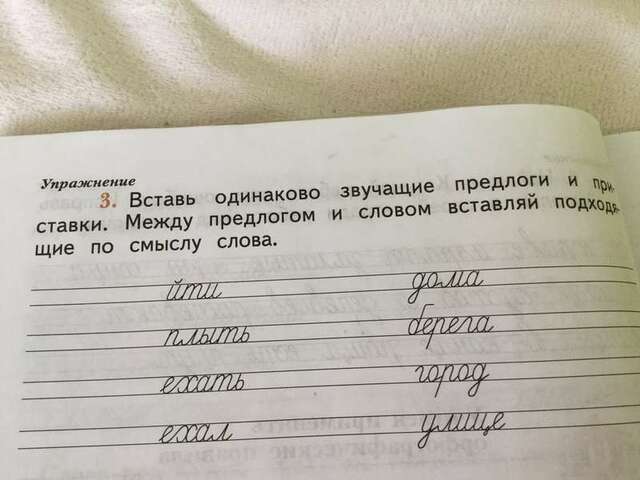 Упражнение
3. Вставь одинаково звучащие предлоги и при-
ставки. Между предлогом и словом вставляй подходя-
щие по смыслу слова.
йти дома
плыть берега
ехать город
ехал улице